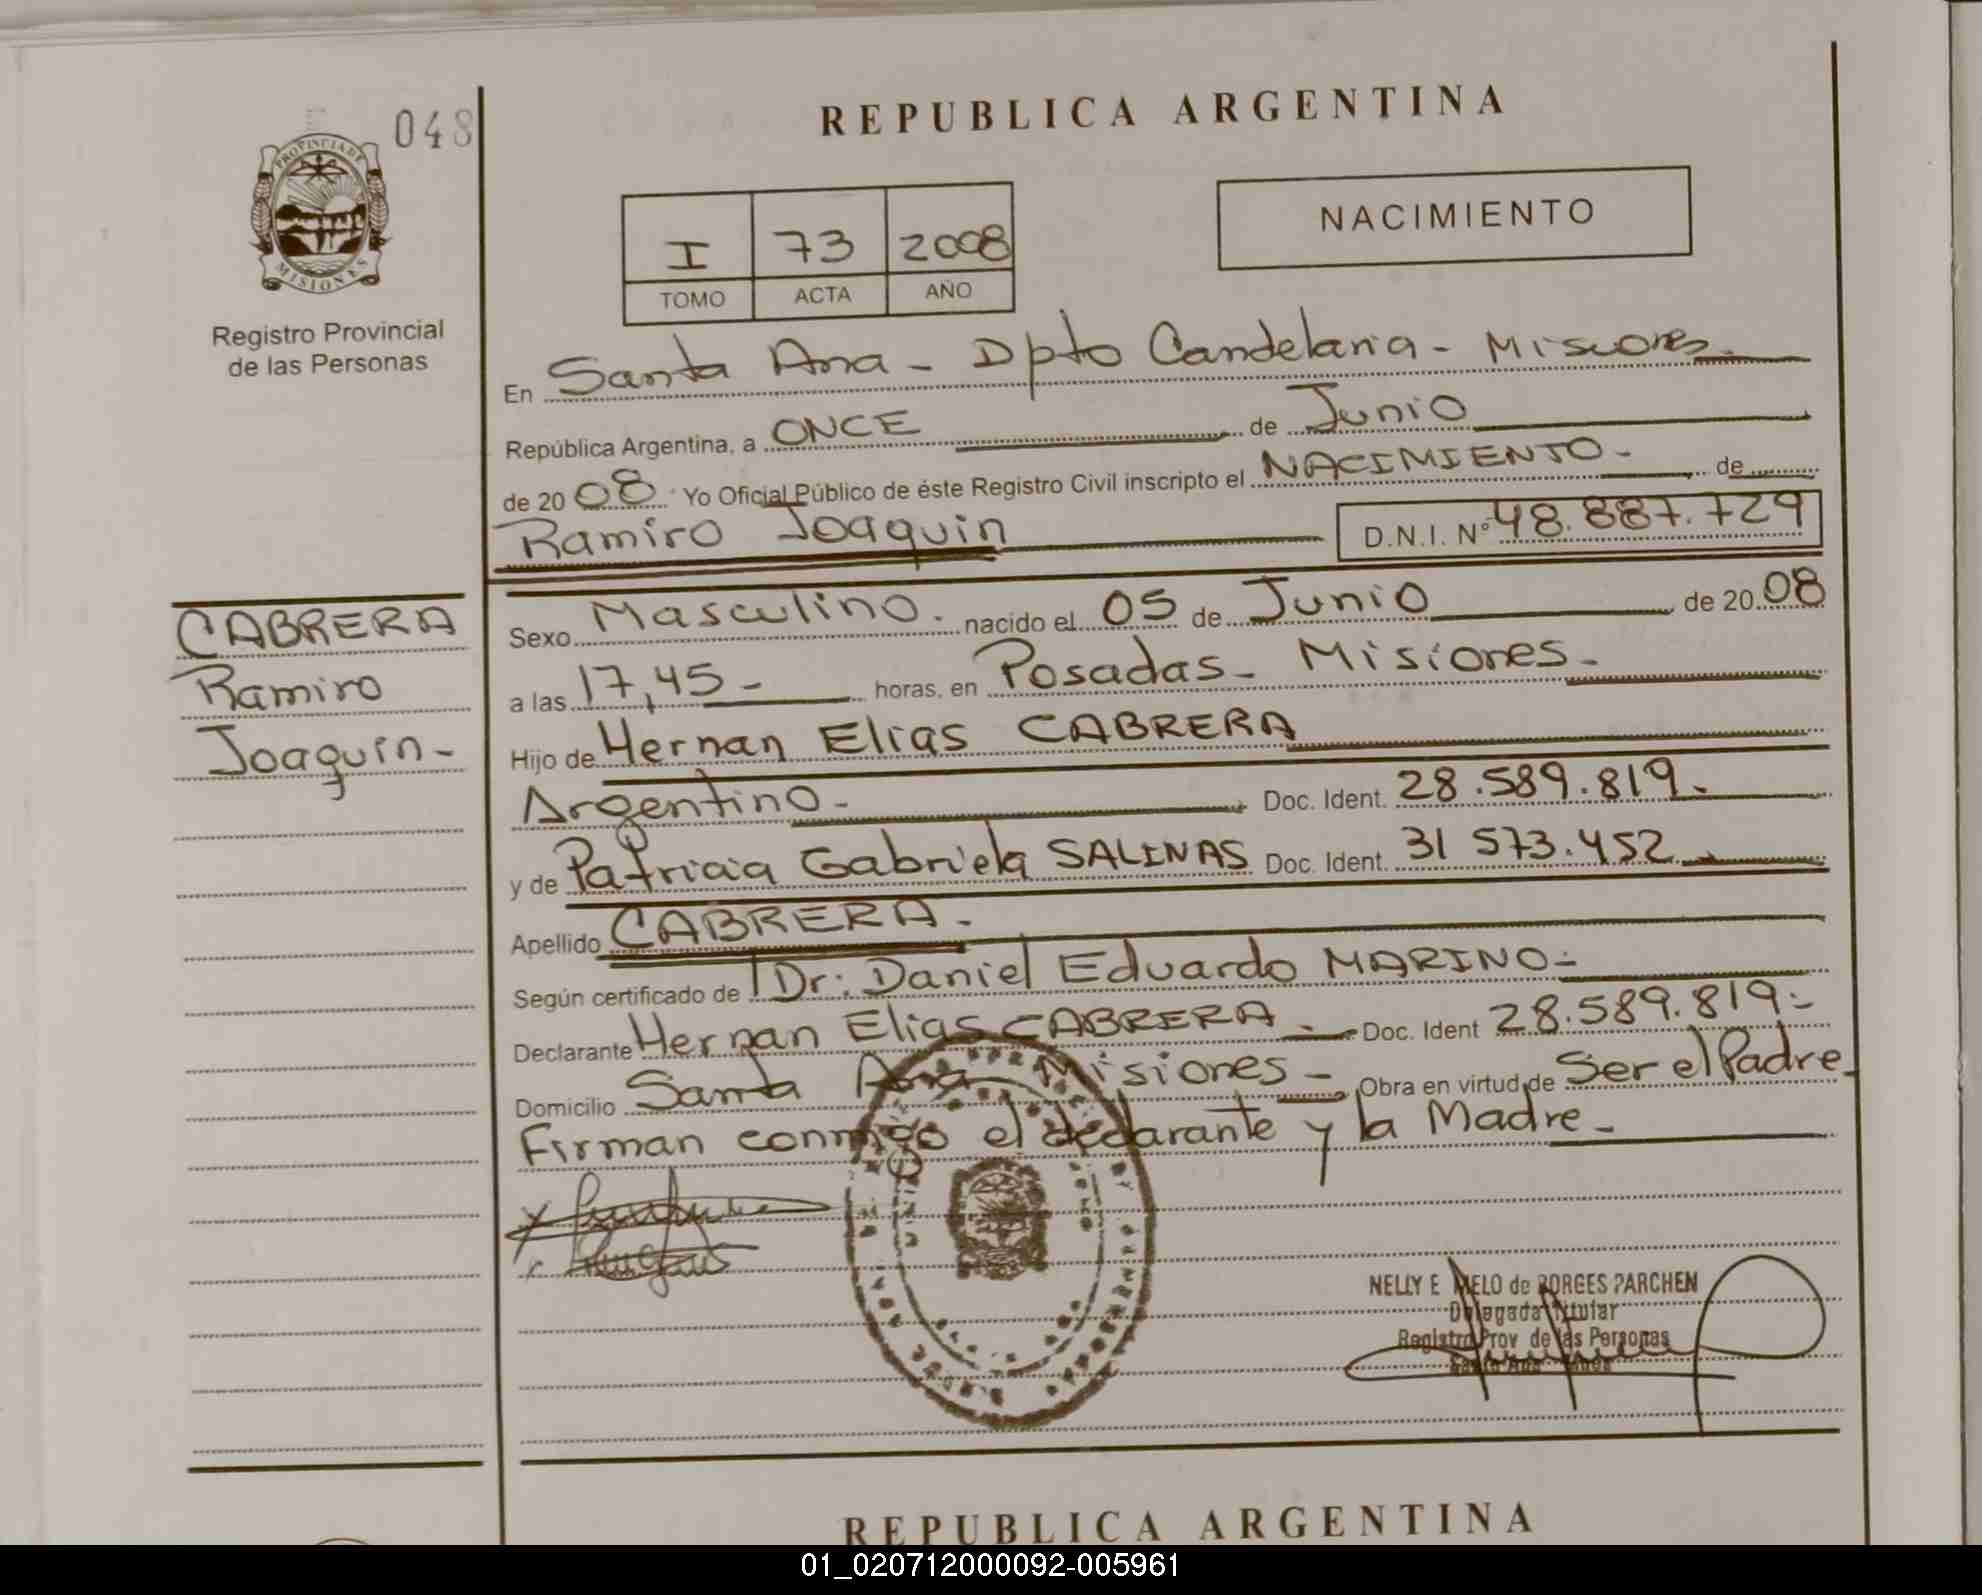 048
PROVINCIA DE
MISIONES
Registro Provincial
de las Personas
REPUBLICA ARGENTINA
I 73 2008
TOMO ACTA AÑO
NACIMIENTO
En Santa Ana - Dpto Candelaria - Misiones.
República Argentina, a ONCE de Junio
de 2008 Yo Oficial Público de éste Registro Civil inscripto el NACIMIENTO - de
Ramiro Joaquin D.N.I. N° 48.887.729
CABRERA
Ramiro
Joaquin -
Sexo Masculino. nacido el 05 de Junio de 2008
a las 17,45 - horas, en Posadas - Misiones -
Hijo de Hernan Elias CABRERA
Argentino - Doc. Ident. 28.589.819.
y de Patricia Gabriela SALINAS Doc. Ident. 31 573.452
Apellido CABRERA -
Según certificado de Dr: Daniel Eduardo MARINO -
Declarante Hernan Elias CABRERA - Doc. Ident 28.589.819 -
Domicilio Santa Ana Misiones - Obra en virtud de Ser el Padre -
Firman conmigo el declarante y la Madre -
NELLY E MELO de BORGES PARCHEN
Delegada Titular
Registro Prov de las Personas
REPUBLICA ARGENTINA
01_020712000092-005961